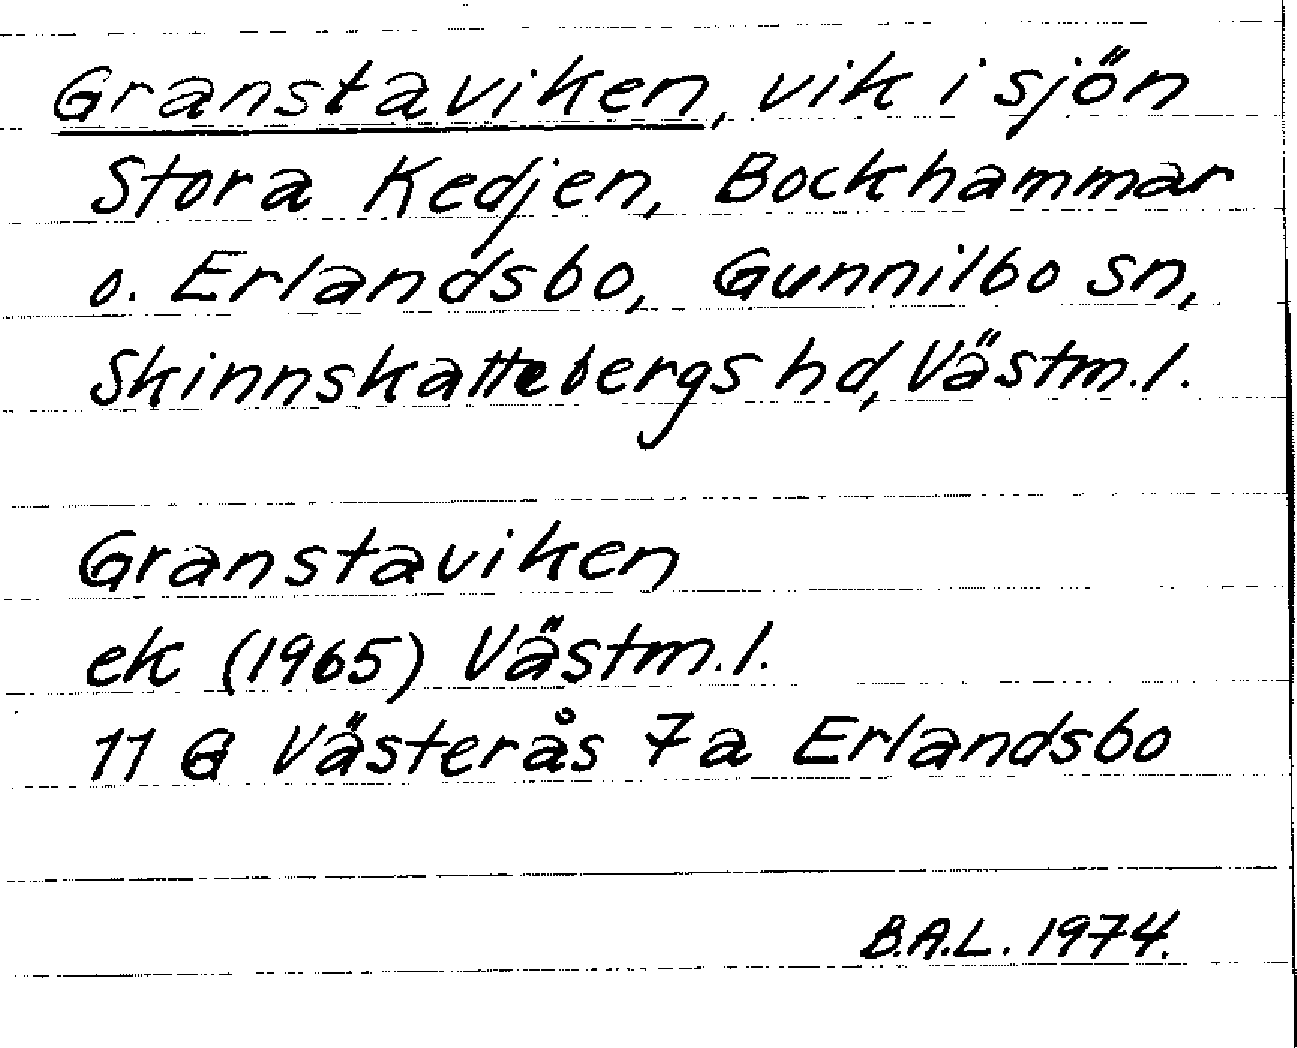 Granstaviken, vik i sjön
Stora Kedjen, Bockhammar
o. Erlandsbo, Gunnilbo sn,
Skinnskattebergs hd, Västm. l.
Granstaviken
ek (1965) Västm. l.
11 G Västerås 7a Erlandsbo
B.A.L. 1974.